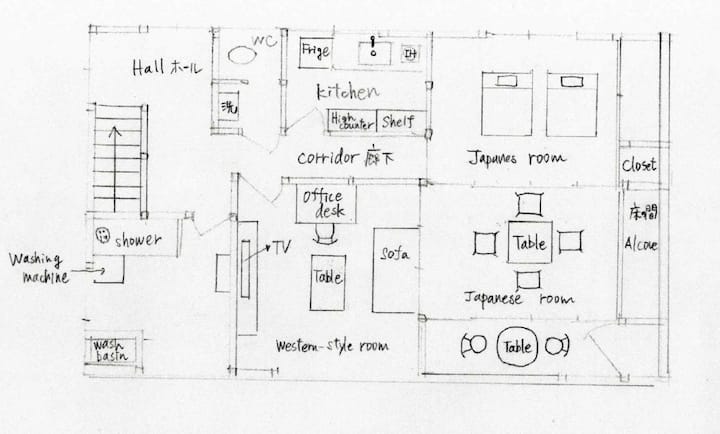 WC
Hall ホール
Frige
IH
kitchen
洗
High
counter
Shelf
corridor 廊下
Japanes room
Closet
床間
Alcove
Office
desk
shower
Washing
machine
TV
Sofa
Table
Table
Japanese room
wash
basin
Western-style room
Table